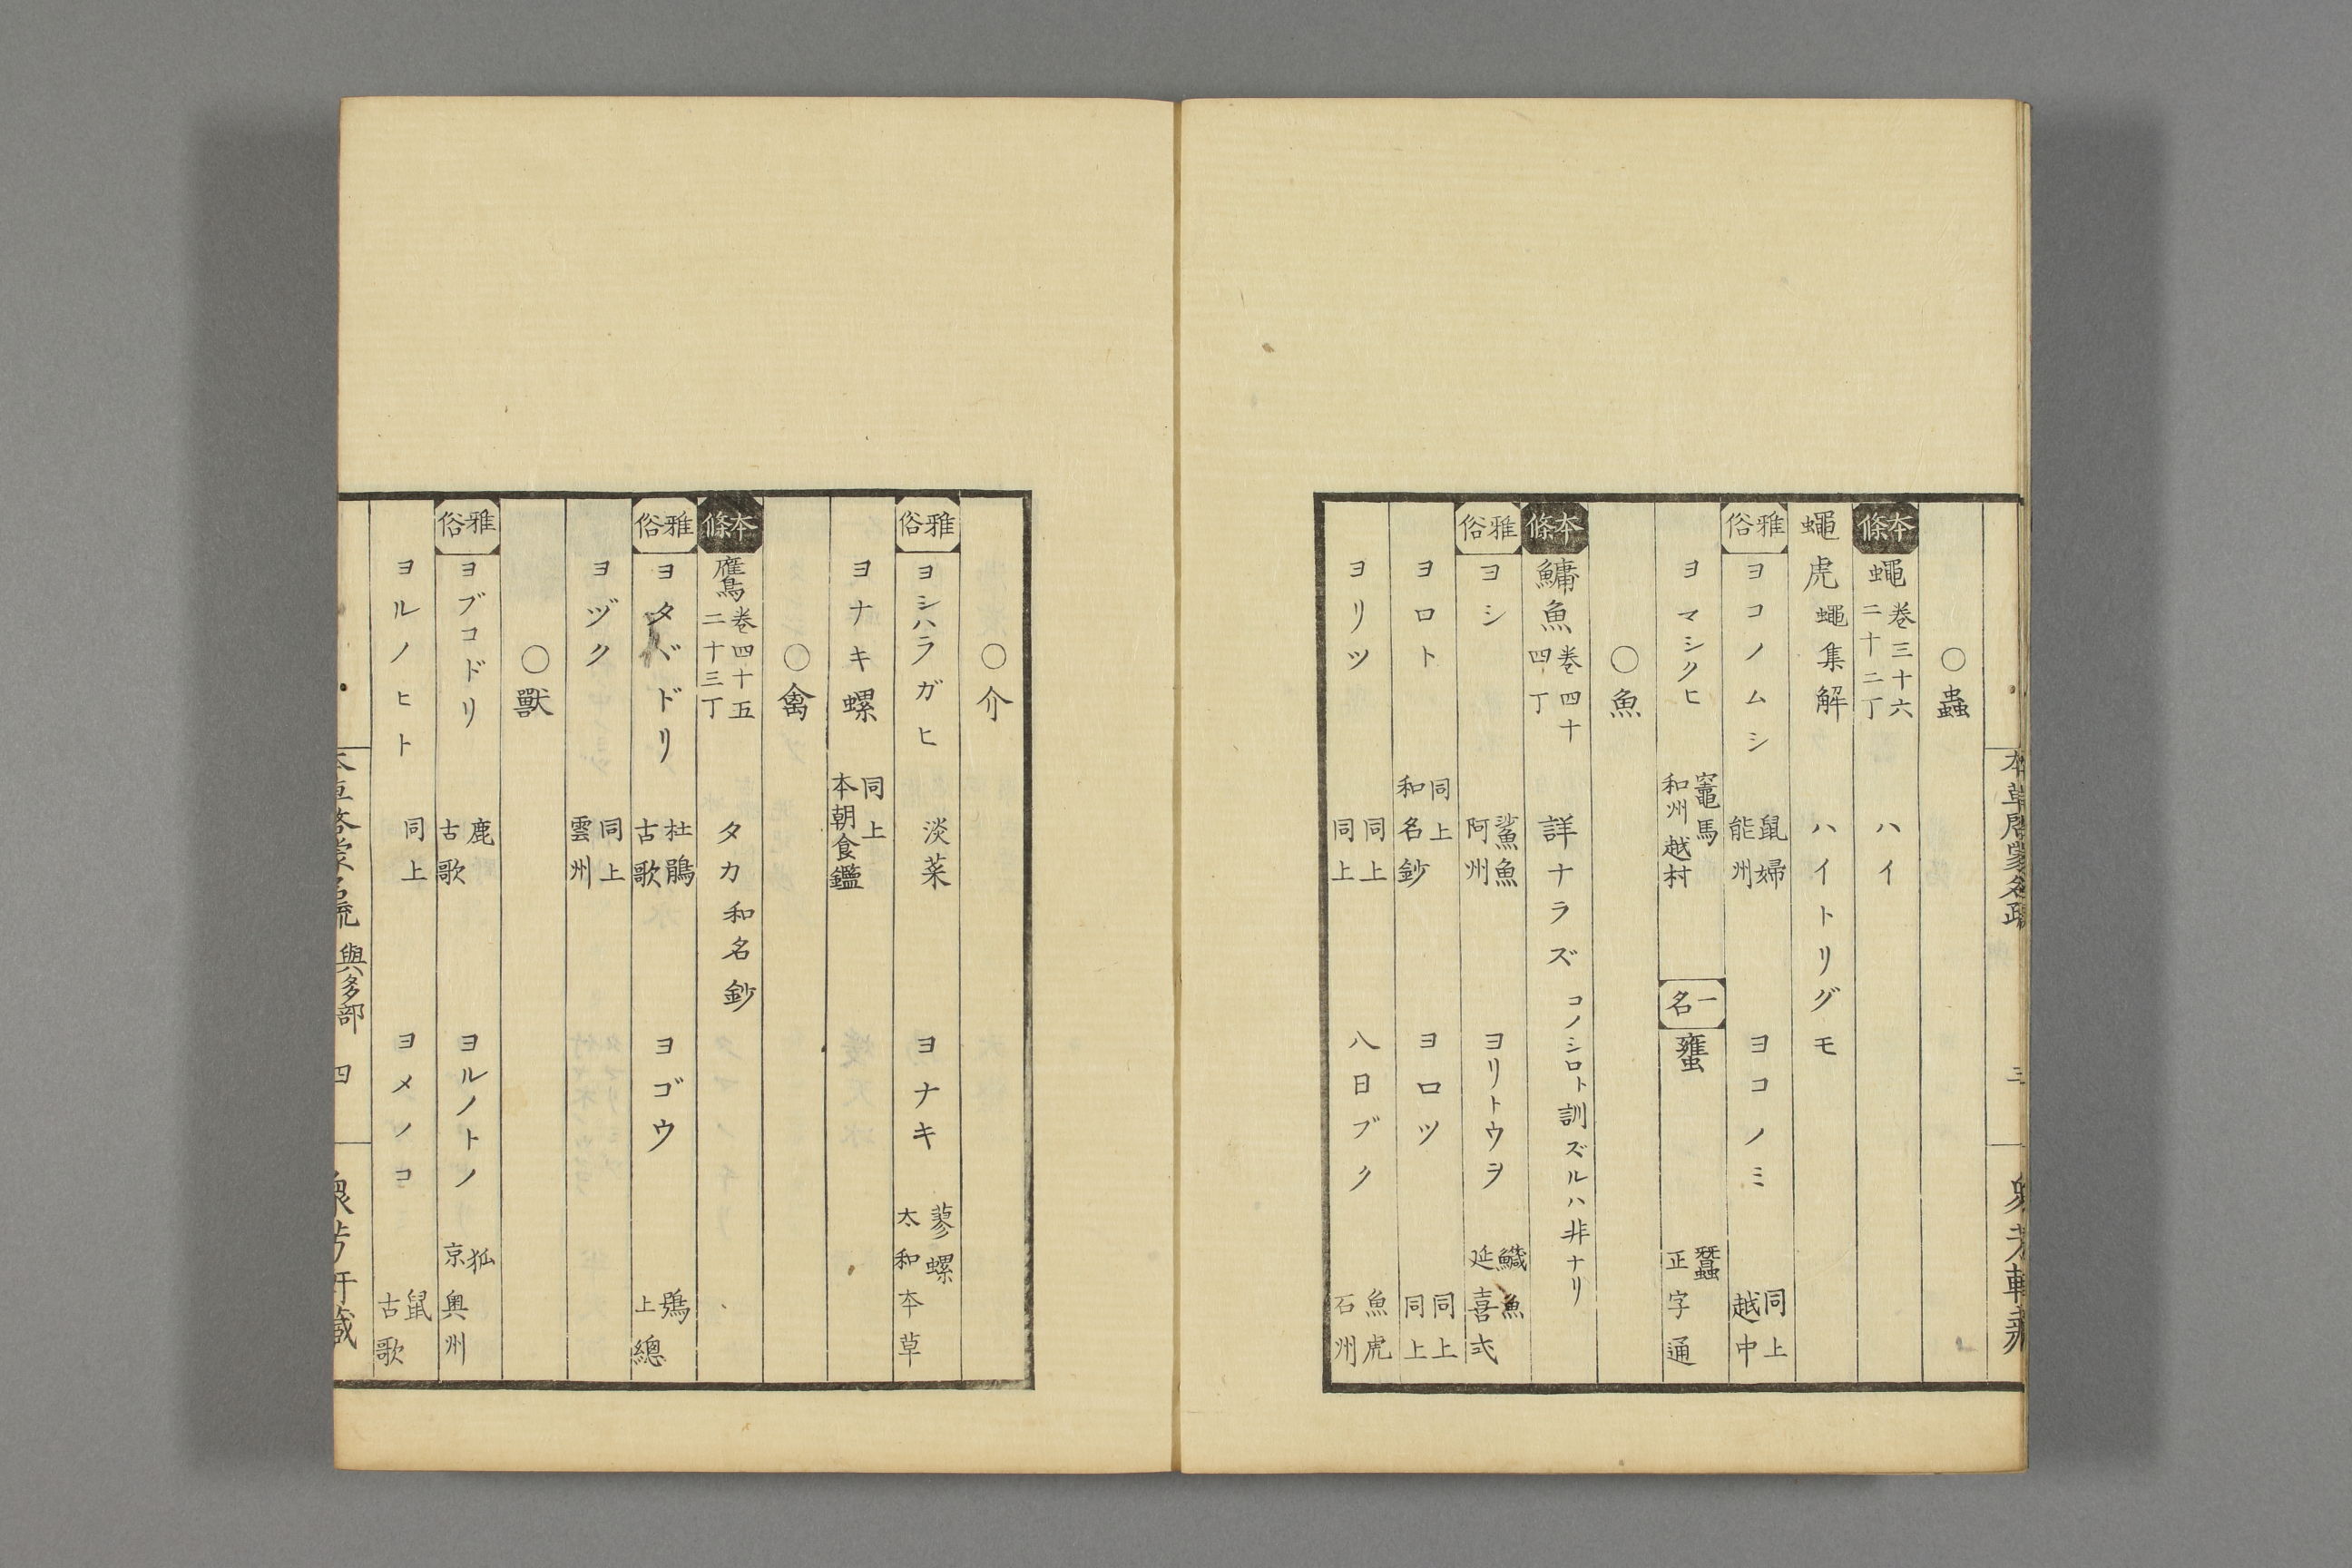 本草啓蒙名疏 三
○蟲
本條 蠅 卷三十六 二十二丁 ハイ
蠅虎 蠅集解 ハイトリグモ
雅俗 ヨコノムシ 鼠婦 能州 ヨコノミ 同上 越中
ヨマシクヒ 竈馬 和州越村 一名 蠶 正字通
○魚
本條 鱅魚 卷四十 四丁 詳ナラズ コノシロト訓ズルハ非ナリ
雅俗 ヨシ 鯊魚 阿州 ヨリトウヲ 魚 延喜式
ヨロト 同上 和名鈔 ヨロツ 同上 同上
ヨリツ 同上 同上 八日ブク 魚虎 石州
○介
雅俗 ヨシハラガヒ 淡菜 ヨナキ 蓼螺 大和本草
ヨナキ螺 同上 本朝食鑑
○禽
本條 鴈 卷四十五 二十三丁 タカ 和名鈔
雅俗 ヨタヾドリ 杜鵑 古歌 ヨゴウ 鴞 上總
ヨヅク 同上 雲州
○獸
雅俗 ヨブコドリ 鹿 古歌 ヨルノトノ 狐 京 奥州
ヨルノヒト 同上 ヨメノコ 鼠 古歌
本草啓蒙名疏 與多部 四 衆芳軒藏